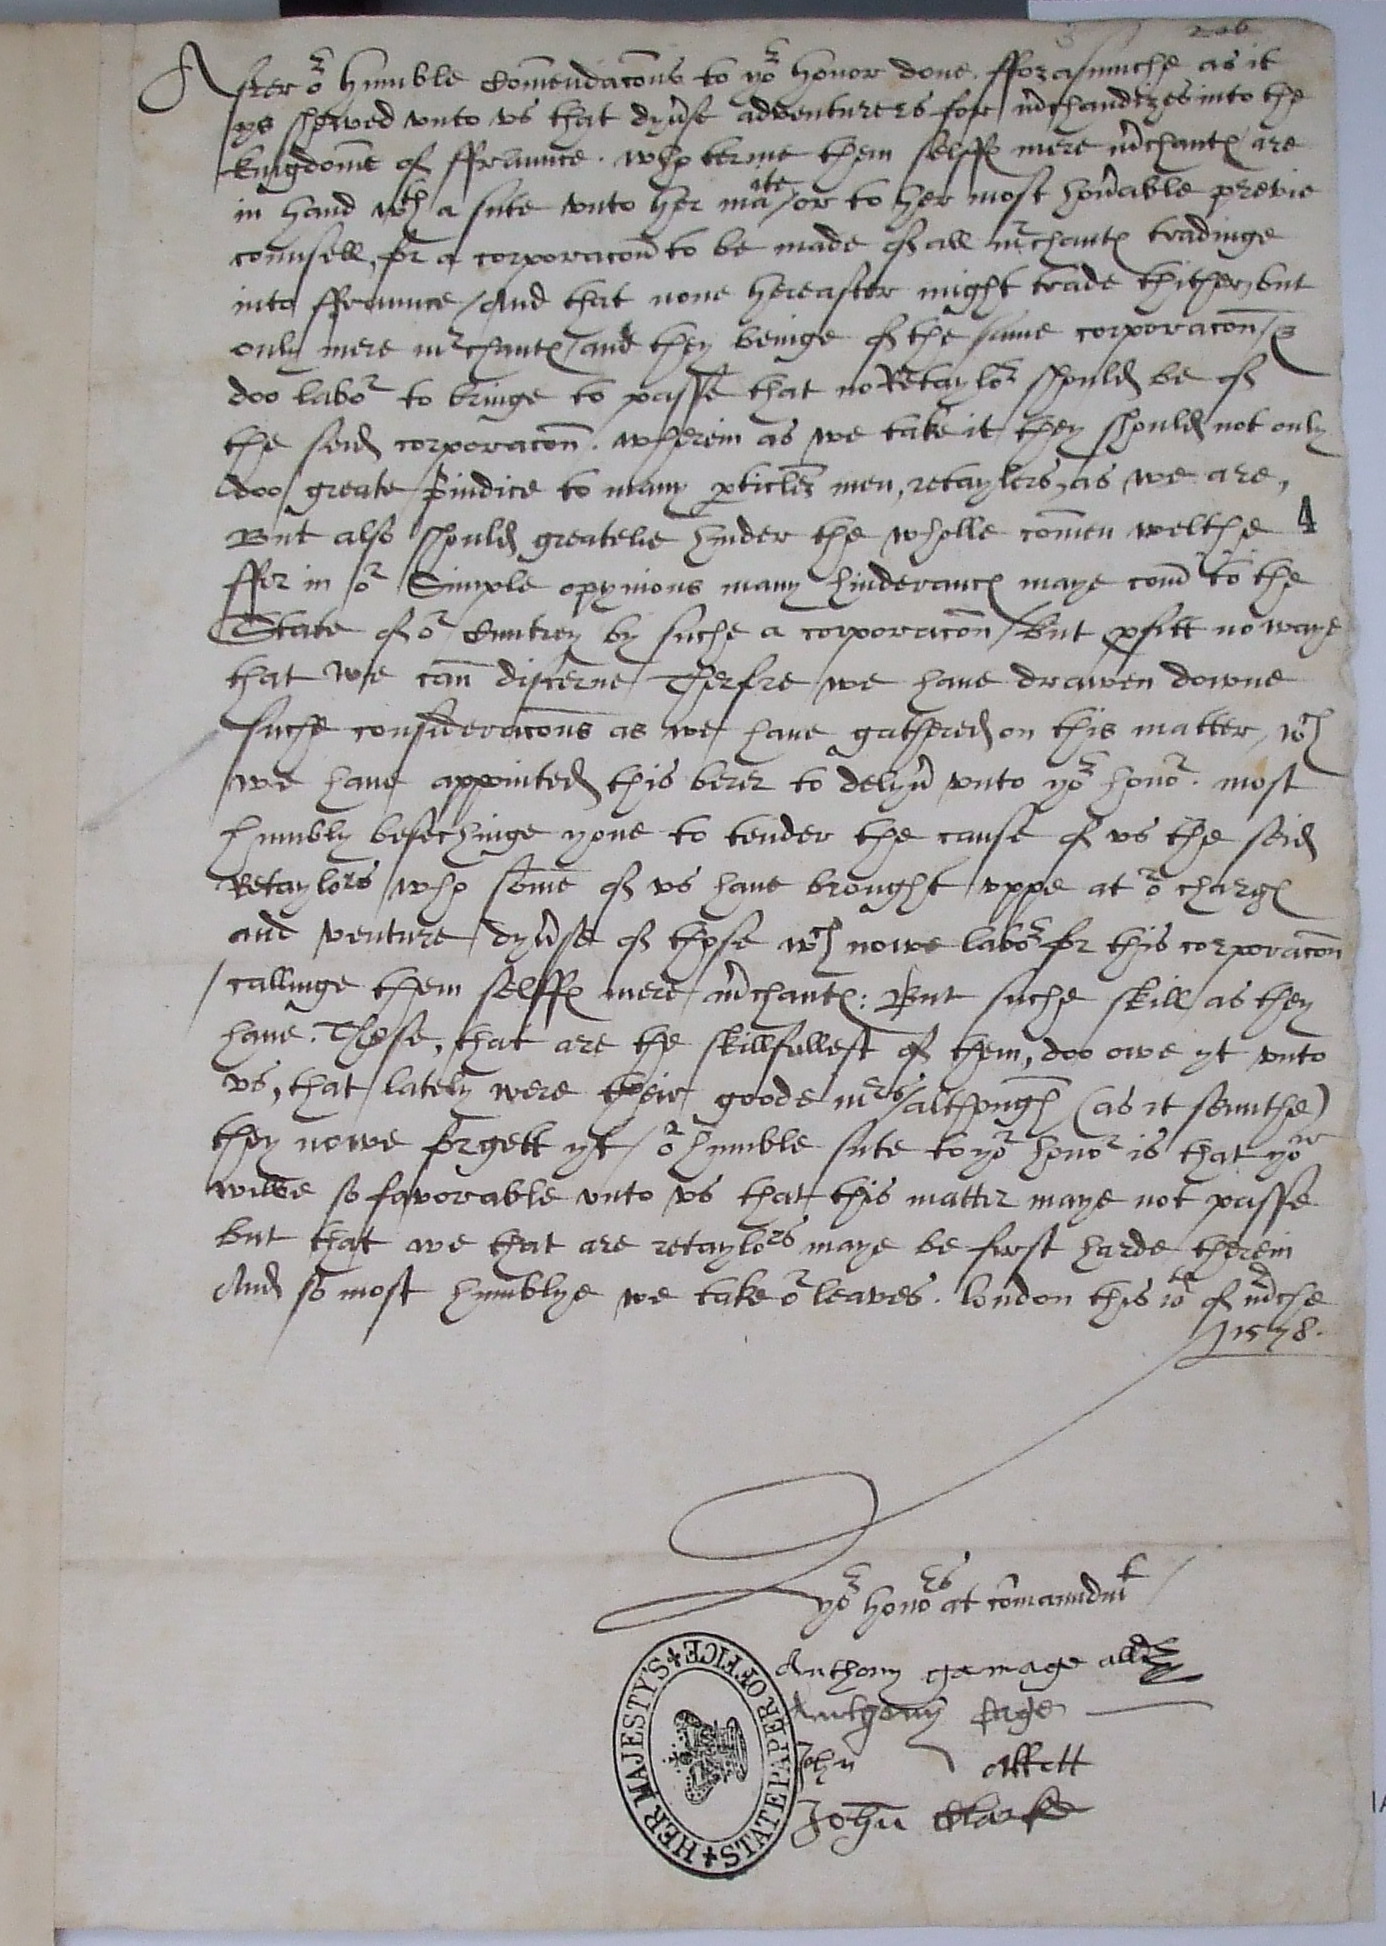 206
After or humble Comendacons to yor honor done. fforasmuche as it
ys shewed vnto vs that dyuse adventurers for mchandizes into the
kingdome of ffraunce. who terme them selffes mere mchantes are
in hand wth a sute vnto her matie / or to her most honable previe
counsell, for a corporacon to be made of all mrchantes tradinge
into ffraunce / And that none hereafter might trade thither, but
only mere mrchantes / and they beinge of the same corporacon /
doo labor to bringe to passe that no Retaylor should be of
the seid corporacon. wherein as we take it they should not only
doo greate piudice to many pticler men, retaylers, as we are,
But also should greatelie hinder the wholle comen welthe
4
ffor in or Simple opynions many hinderances maye come to the
State of or Cuntrey by suche a corporacon / But pfitt no waye
that we can discerne Therfore we haue drawen downe
suche consideracons as we haue gathered on this matter, wch
we haue appointed this berer to delyu vnto yor honor. most
humbly besechinge youe to tender the cause of vs the seid
Retaylors who some of vs haue brought vppe at or charges
and venture dyuse of those wch nowe labor for this corporacon
/ callinge them selffes mere mchantes: But suche skill as they
haue. Those, that are the skillfullest of them, doo owe yt vnto
vs, that lately were their goode mrs / althoughe (as it semithe)
they nowe forgett yt / or humble sute to yor honor is that yow
wilbe so favorable vnto vs that this matter maye not passe
but that we that are retaylors maye be first harde therein
And so most humblye we take or leaves. london this of mche
1578.
yor honors at comaundmt
Anthony gamage
Anthony
John
John Clarke
HER MAJESTY'S STATE PAPER OFFICE